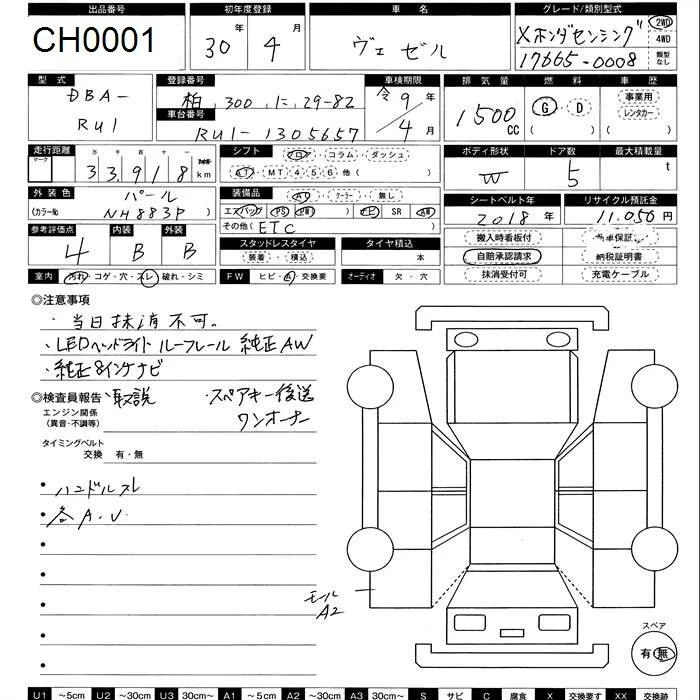 出品番号 初年度登録 車名 グレード/類別型式
CH0001 30年 4月 ヴェゼル Xホンダセンシング 2WD 4WD
17665-0008 類型なし
型式 登録番号 車検期限 排気量 燃料 車歴
DBA-RU1 柏 300 に 29-82 令9年 4月 1500cc G・D 事業用
車台番号 レンタカー
RU1-1305657 ( ) ( )
走行距離 シフト フロア コラム ダッシュ ボディ形状 ドア数 最大積載量
マーク 万 千 百 十 一
33,918km AT・MT 4 5 6 他( ) W 5 t
外装色 パール 装備品 AC・クーラー・無し シートベルト年 リサイクル預託金
(カラーNo NH883P ) エアバッグ PS PW ナビ SR AW 2018年 11,050円
参考評価点 内装 外装 その他( ETC ) 搬入時看板付 新車保証
4 B B スタッドレスタイヤ タイヤ積込 自賠承認請求 納税証明書
(装着・積込) 本 抹消受付可 充電ケーブル
室内 汚れ・コゲ・穴・スレ・破れ・シミ FW ヒビ・A・交換要 オーディオ 欠・穴
◎注意事項
・当日抹消不可。
・LEDヘッドライト ルーフレール 純正AW
・純正8インチナビ
◎検査員報告・取説 ・スペアキー後送
エンジン関係 ワンオーナー
(異音・不調等)
タイミングベルト
交換 有・無
・ハンドルスレ
・各A.U.
モール
A2
スペア
有・無
U1 ～5cm U2 ～30cm U3 30cm～ A1 ～5cm A2 ～30cm A3 30cm～ S サビ C 腐食 X 交換要す XX 交換跡